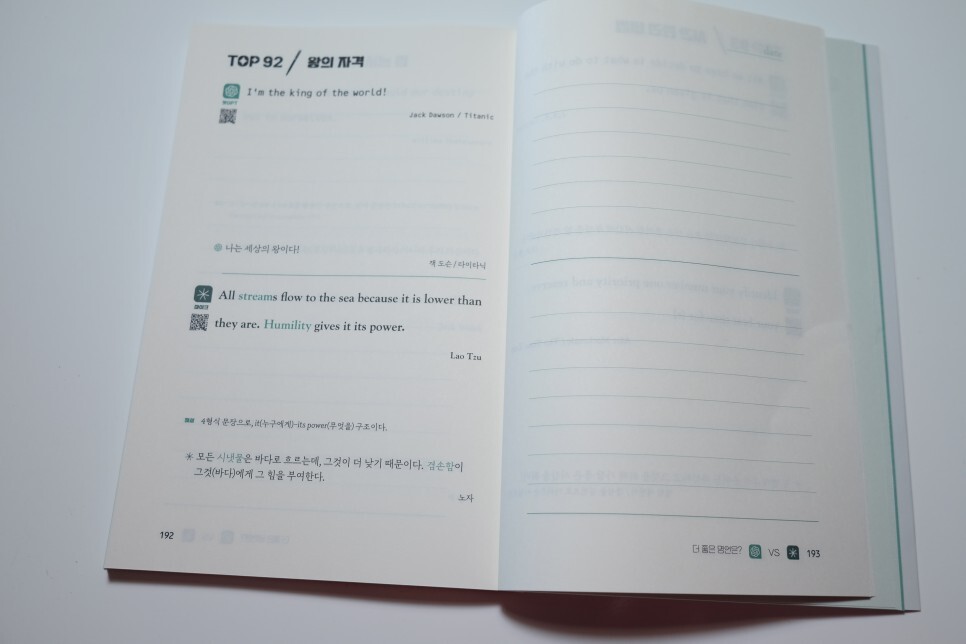 TOP 92 / 왕의 자격
I'm the king of the world!
챗GPT
Jack Dawson / Titanic
나는 세상의 왕이다!
잭 도슨 / 타이타닉
All streams flow to the sea because it is lower than
they are. Humility gives it its power.
Lao Tzu
4형식 문장으로, it(누구에게)-its power(무엇을) 구조이다.
모든 시냇물은 바다로 흐르는데, 그것이 더 낮기 때문이다. 겸손함이
그것(바다)에게 그 힘을 부여한다.
노자
192
더 좋은 명언은? VS 193